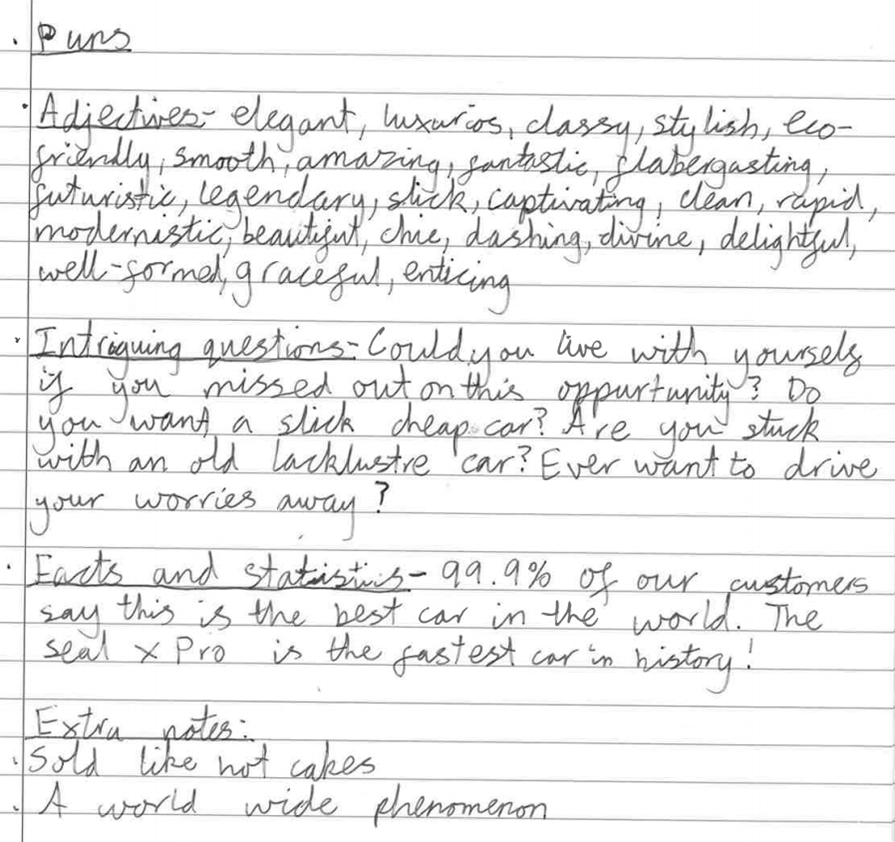 · Puns
· Adjectives- elegant, luxurios, classy, stylish, eco-
friendly, smooth, amazing, fantastic, flabergasting,
futuristic, legendary, slick, captivating, clean, rapid,
modernistic, beautiful, chic, dashing, divine, delightful,
well-formed, graceful, enticing
· Intriguing questions- Could you live with yourself
if you missed out on this oppurtunity? Do
you want a slick cheap car? Are you stuck
with an old lacklustre car? Ever want to drive
your worries away?
· Facts and statistics- 99.9% of our customers
say this is the best car in the world. The
seal x Pro is the fastest car in history!
Extra notes:
· Sold like hot cakes
· A world wide phenomenon